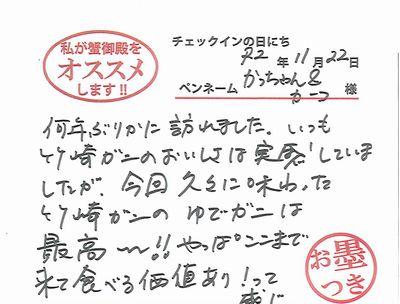 私が蟹御殿を
オススメ
します!!
チェックインの日にち
R2年11月22日
ペンネーム かっちゃん&
かーこ 様
何年ぶりかに訪れました。いつも
竹崎ガニのおいしさは実感!していま
したが、今回久々に味わった
竹崎ガニのゆでガニは
最高〜!!やっぱここまで
来て食べる価値あり!って
感じ
お墨
つき